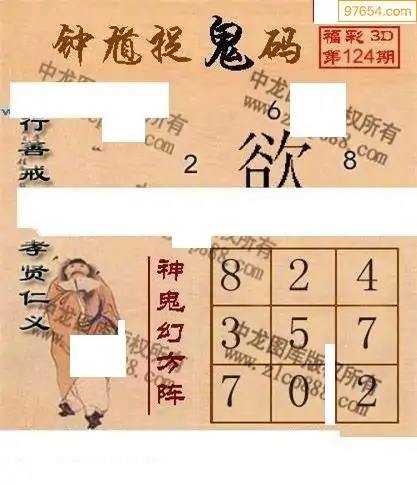 97654.com
钟馗捉鬼码
福彩3D
第124期
行善戒
6
2
欲
8
孝贤仁义
神鬼幻方阵
8 2 4
3 5 7
7 0 2
中龙图库版权所有
中龙图库版权所有